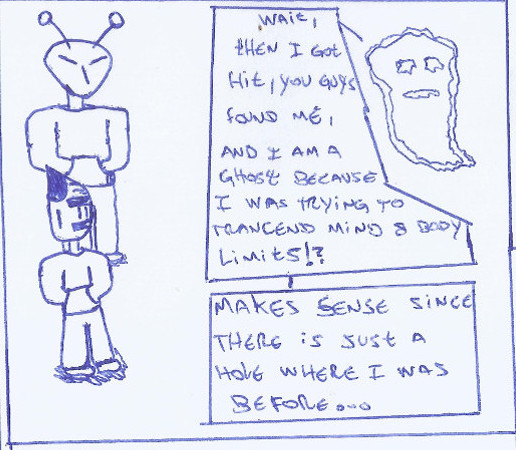 WAIt,
tHEN I GOt
Hit, YOU GUYS
FOUND ME,
AND I AM A
GHOSt BECAUSE
I WAS tRYING TO
TRANCEND MIND & BODY
LIMITS!?
MAKES SENSE SINCE
THERE IS JUST A
HOLE WHERE I WAS
BEFORE...